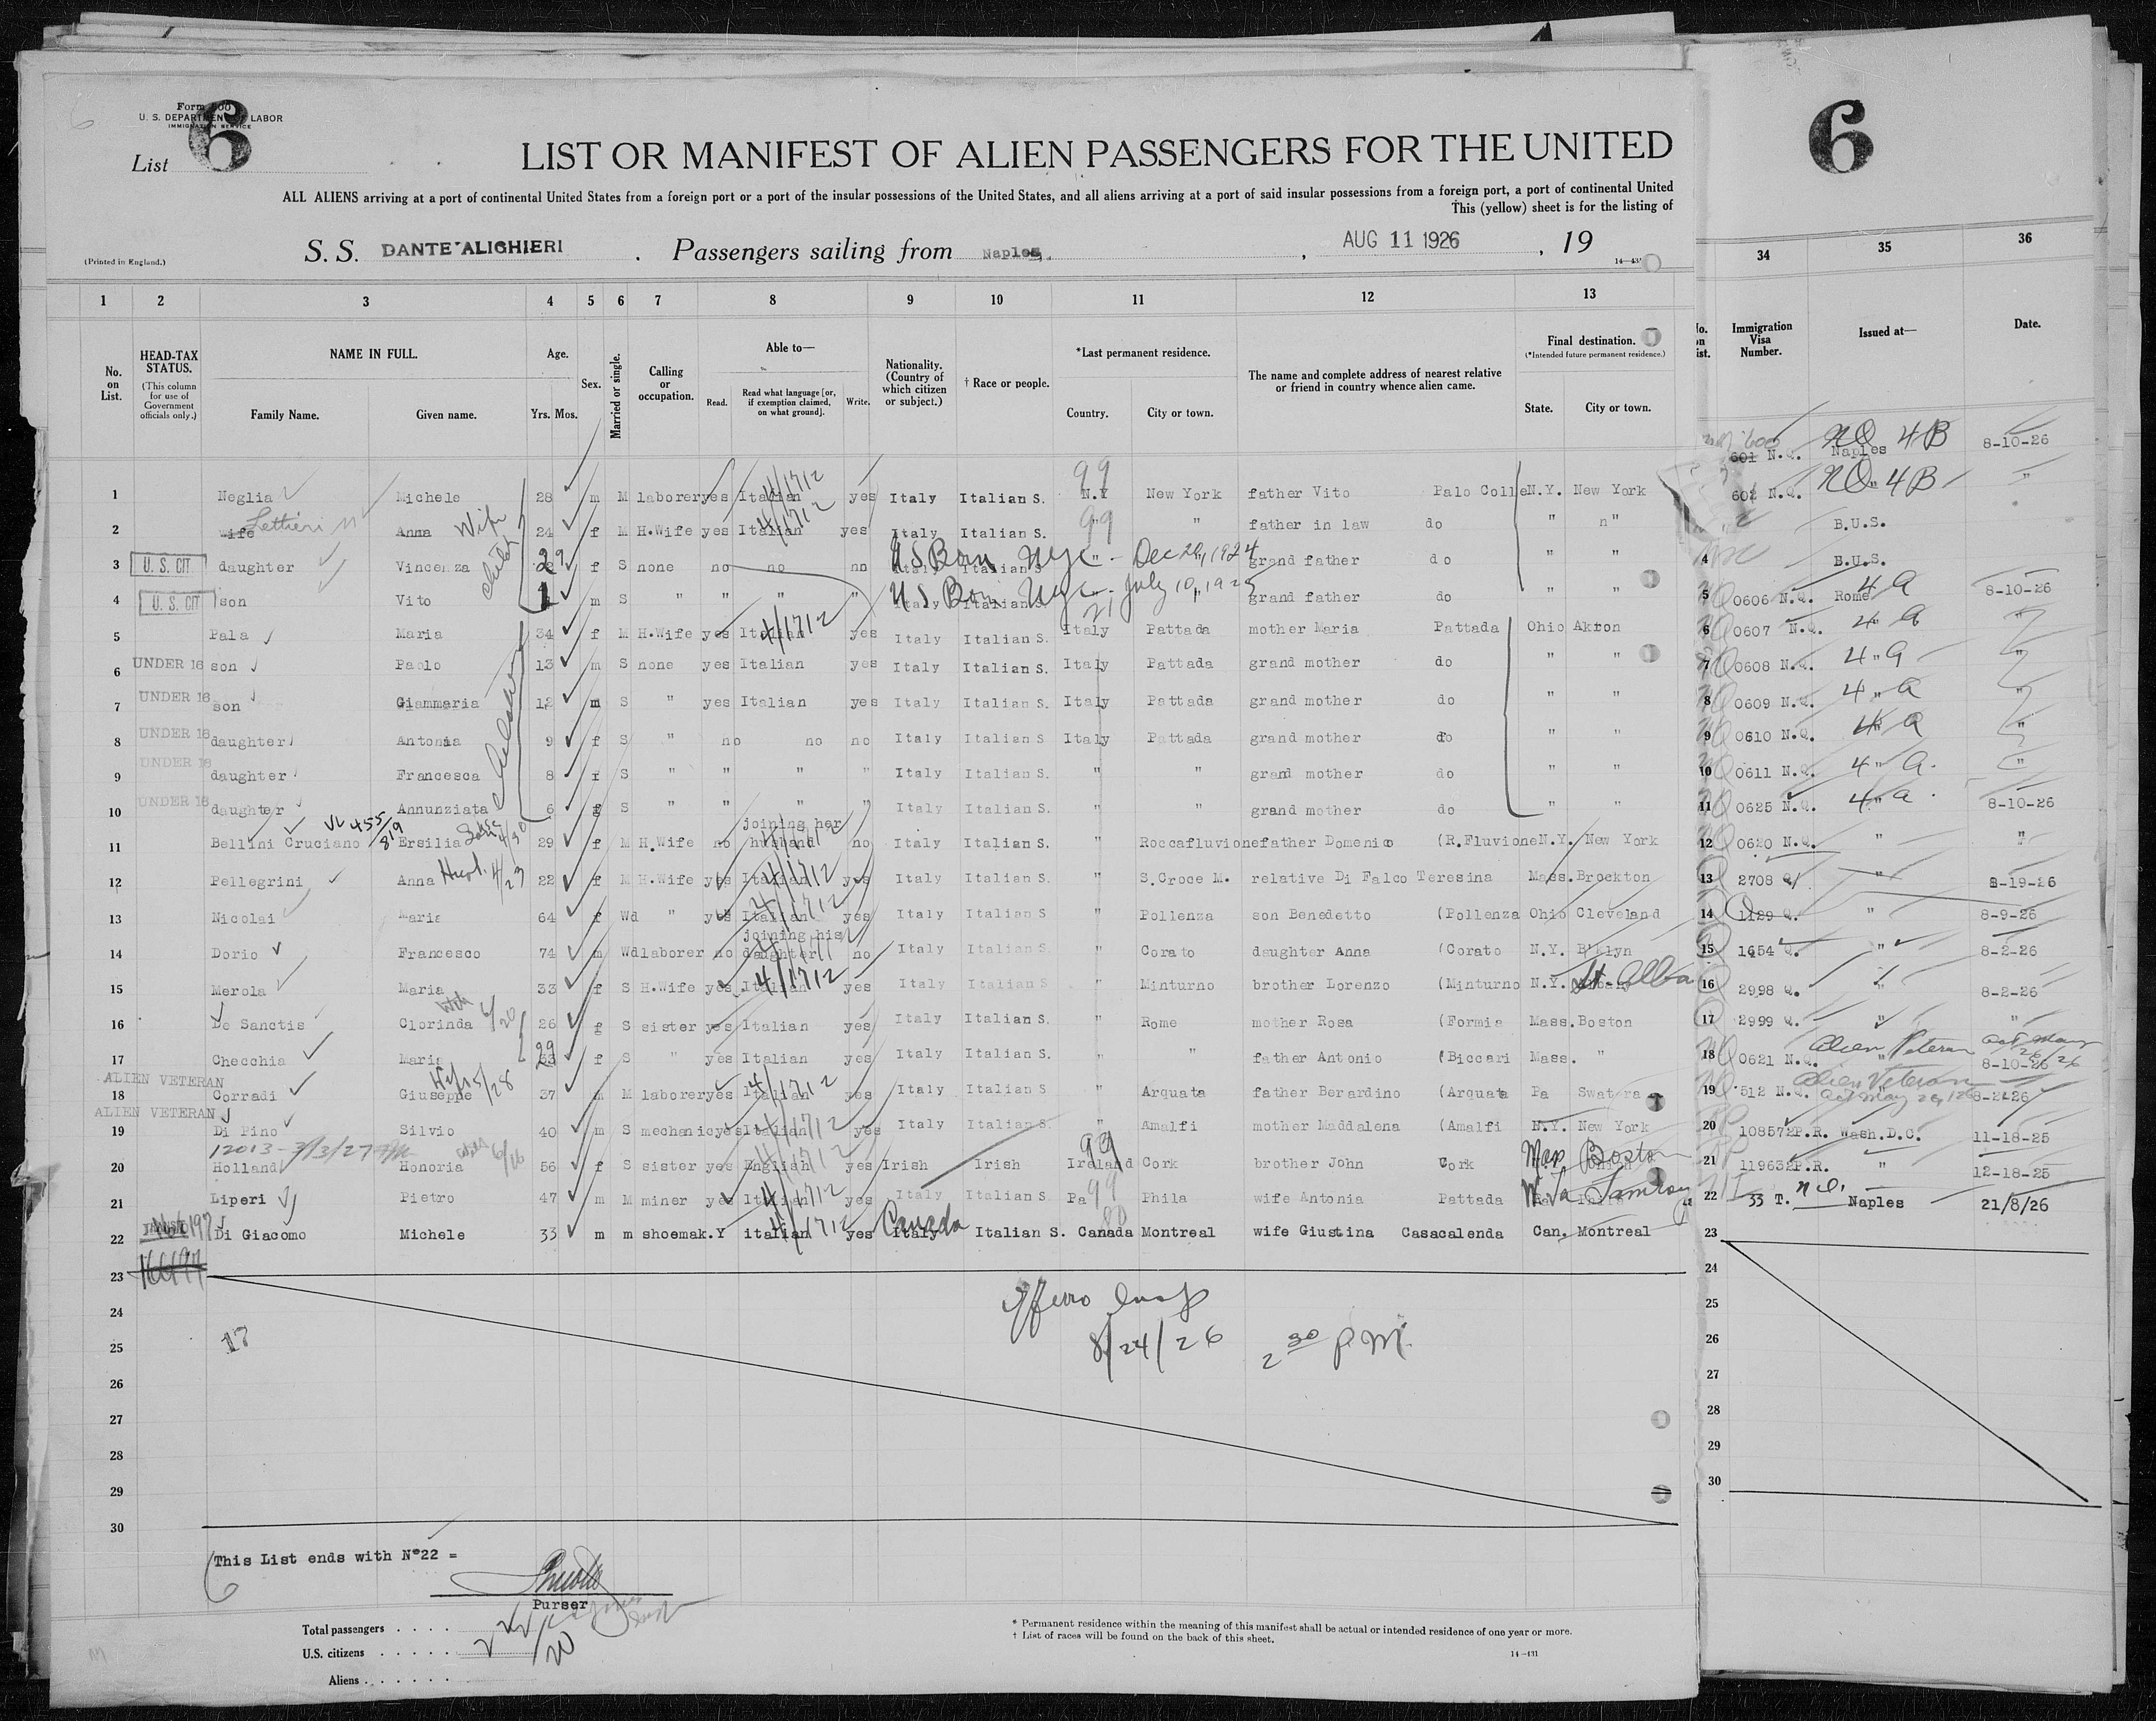 Form 500
U. S. DEPARTMENT OF LABOR
IMMIGRATION SERVICE
List 6
LIST OR MANIFEST OF ALIEN PASSENGERS FOR THE UNITED
ALL ALIENS arriving at a port of continental United States from a foreign port or a port of the insular possessions of the United States, and all aliens arriving at a port of said insular possessions from a foreign port, a port of continental United
This (yellow) sheet is for the listing of
(Printed in England.)
S. S. DANTE ALIGHIERI . Passengers sailing from Naples, , AUG 11 1926 , 19
6
1 2 3 4 5 6 7 8 9 10 11 12 13 34 35 36
No. on List.
HEAD-TAX STATUS.
(This column for use of Government officials only.)
NAME IN FULL.
Family Name. Given name.
Age.
Yrs. Mos.
Sex.
Married or single.
Calling or occupation.
Able to—
Read. Read what language [or, if exemption claimed, on what ground]. Write.
Nationality. (Country of which citizen or subject.)
† Race or people.
*Last permanent residence.
Country. City or town.
The name and complete address of nearest relative or friend in country whence alien came.
Final destination.
(*Intended future permanent residence.)
State. City or town.
Immigration Visa Number.
Issued at—
Date.
601 N.Q. Naples NQ 4B 8-10-26
1 Neglia Michele 28 m M laborer yes Italian yes Italy Italian S. N.Y New York father Vito Palo Colle N.Y. New York 602 N.Q. " NQ 4B "
2 wife Lettieri Anna Wife 24 f M H.Wife yes Italian yes Italy Italian S. " " father in law do " n" B.U.S.
3 U. S. CIT daughter Vincenza f S none no no no Italy Italian S US Born Nyc - Dec 29, 1924 grand father do " " 4 B.U.S.
4 U. S. CIT son Vito 1 m S " " " " Italy Italian S US Born Nyc - July 10, 1925 grand father do " " 5 0606 N.Q. Rome 4 A 8-10-26
5 Pala Maria 34 f M H.Wife yes Italian yes Italy Italian S. Italy Pattada mother Maria Pattada Ohio Akron 6 0607 N.Q. " 4 A "
6 UNDER 16 son Paolo 13 m S none yes Italian yes Italy Italian S. Italy Pattada grand mother do " " 7 0608 N.Q. 4 " A "
7 UNDER 16 son Giammaria 12 m S " yes Italian yes Italy Italian S. Italy Pattada grand mother do " " 8 0609 N.Q. 4 " A "
8 UNDER 16 daughter Antonia 9 f S " no no no Italy Italian S Italy Pattada grand mother do " " 9 0610 N.Q. 4 " A "
9 UNDER 16 daughter Francesca 8 f S " " " " Italy Italian S. " " grand mother do " " 10 0611 N.Q. 4 " A "
10 UNDER 16 daughter Annunziata 6 f S " " " " Italy Italian S. " " grand mother do 11 0625 N.Q. 4 " A 8-10-26
11 Bellini Cruciano Ersilia 29 f M H.Wife no joining her husband no Italy Italian S. " Roccafluvione father Domenico (R.Fluvione N.Y. New York 12 0620 N.Q. " "
12 Pellegrini Anna 22 f M H.Wife yes Italian yes Italy Italian S. " S.Croce M. relative Di Falco Teresina Mass. Brockton 13 2708 Q. " 2-19-26
13 Nicolai Maria 64 f Wd " yes Italian yes Italy Italian S " Pollenza son Benedetto (Pollenza Ohio Cleveland 14 1129 Q. " 8-9-26
14 Dorio Francesco 74 m Wd laborer no joining his daughter no Italy Italian S " Corato daughter Anna (Corato N.Y. B'klyn 15 1654 Q. " 8-2-26
15 Merola Maria 33 f S H.Wife yes Italian yes Italy Italian S " Minturno brother Lorenzo (Minturno N.Y. 16 2998 Q. " 8-2-26
16 De Sanctis Clorinda 26 f S sister yes Italian yes Italy Italian S. " Rome mother Rosa (Formia Mass. Boston 17 2999 Q. " "
17 Checchia Maria 29 f S " yes Italian yes Italy Italian S. " " father Antonio (Biccari Mass. " 18 0621 N.Q. Alien Veteran Act May 26/26 8-10-26
18 ALIEN VETERAN Corradi Giuseppe 37 m M laborer yes Italian yes Italy Italian S " Arquata father Berardino (Arquata Pa Swatara 19 512 N.Q. Alien Veteran Act May 26, 1926
19 ALIEN VETERAN Di Pino Silvio 40 m S mechanic yes Italian yes Italy Italian S. " Amalfi mother Maddalena (Amalfi N.Y. New York 20 108572 P.R. Wash.D.C. 11-18-25
20 Holland Honoria 56 f S sister yes English yes Irish Irish Ireland Cork brother John Cork Mass Boston 21 119632 P.R. " 12-18-25
21 Liperi Pietro 47 m M miner yes Italian yes Italy Italian S Pa Phila wife Antonia Pattada 22 33 T. Naples 21/8/26
22 Di Giacomo Michele 33 m m shoemak. Y italian yes Italy Canada Italian S. Canada Montreal wife Giustina Casacalenda Can. Montreal 23
23 24
24 25
25 17 26
26 27
27 28
28 29
29 30
30
8/24/26 2 30 P.M.
This List ends with N°22 =
Purser
Total passengers . . . .
U.S. citizens . . . . . 2
Aliens . . . . . . 20
* Permanent residence within the meaning of this manifest shall be actual or intended residence of one year or more.
† List of races will be found on the back of this sheet.
14—431